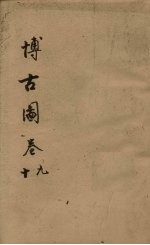 博古圖卷九
十